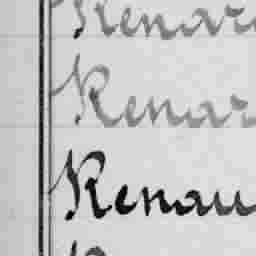 Renar
Renar
Renau